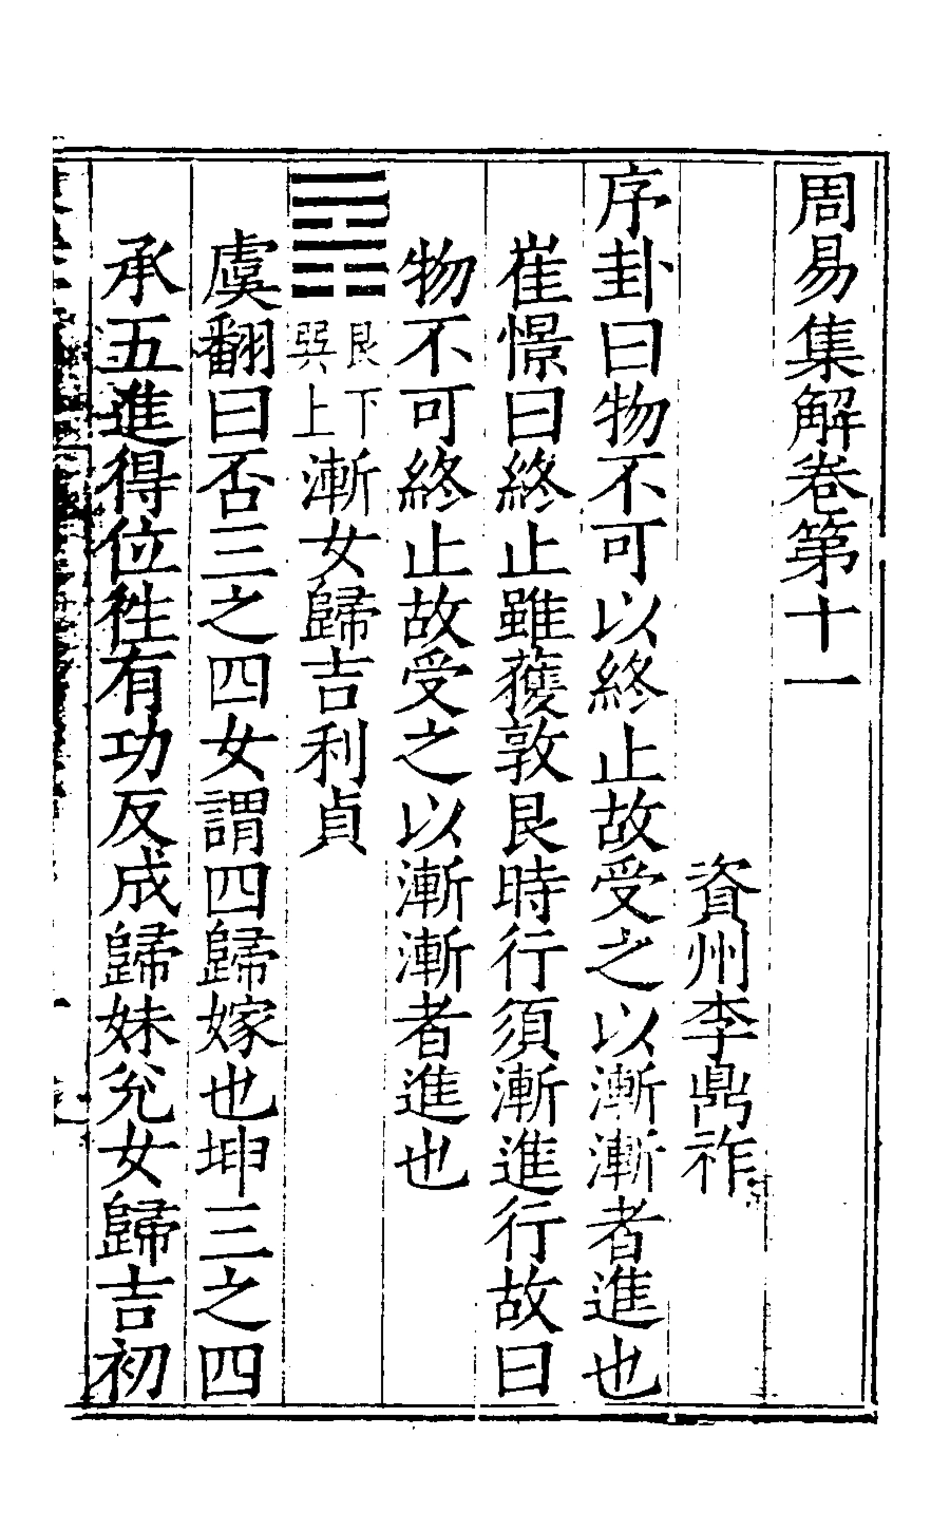 周易集解卷第十一
資州李鼎祚
序卦曰物不可以終止故受之以漸漸者進也
崔憬曰終止雖獲敦艮時行須漸進行故曰
物不可終止故受之以漸漸者進也
䷴艮下巽上漸女歸吉利貞
虞翻曰否三之四女謂四歸嫁也坤三之四
承五進得位徃有功反成歸妹兊女歸吉初